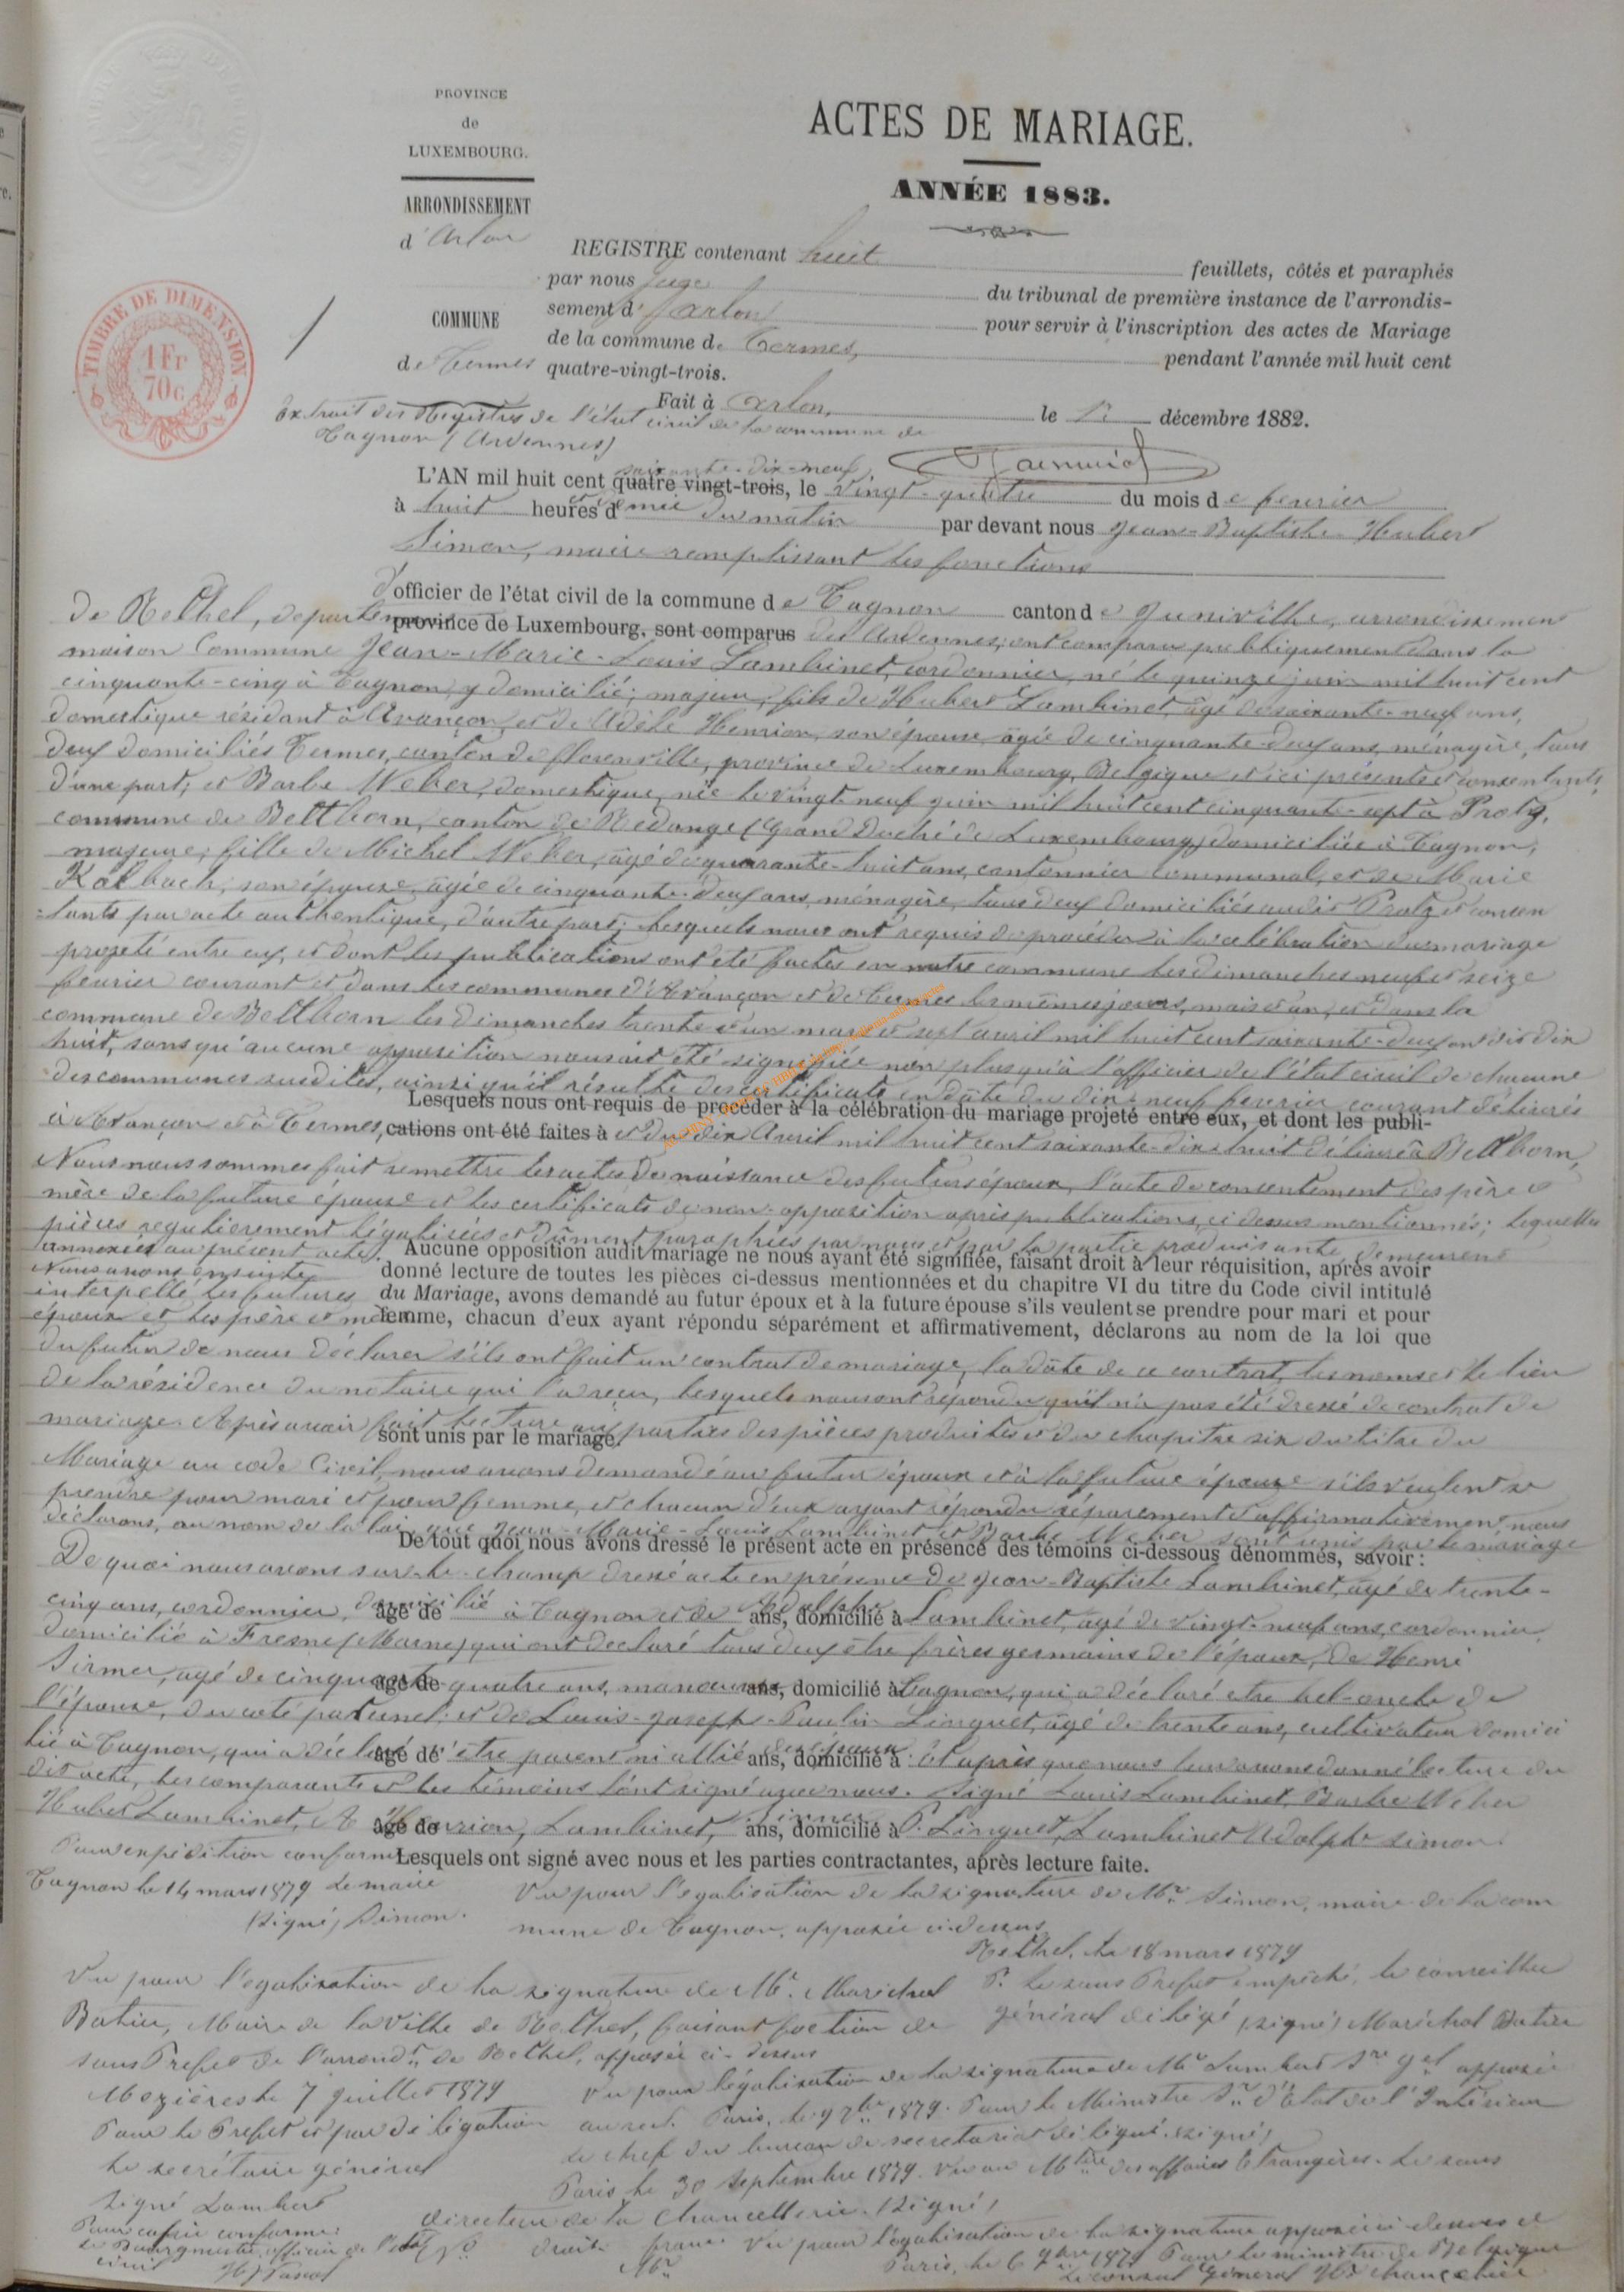 PROVINCE
de
LUXEMBOURG.
ARRONDISSEMENT
d'Arlon
COMMUNE
de Termes
TIMBRE DE DIMENSION
1 Fr
70c
ACTES DE MARIAGE.
ANNÉE 1883.
REGISTRE contenant huit feuillets, côtés et paraphés
par nous juge du tribunal de première instance de l'arrondis-
sement d'Arlon pour servir à l'inscription des actes de Mariage
de la commune de Termes, pendant l'année mil huit cent
quatre-vingt-trois.
Fait à Arlon, le décembre 1882.
Extrait des Registres de l'état civil de la commune de
Tagnon (Ardennes)
soixante-dix-neuf
L'AN mil huit cent quatre vingt-trois, le vingt-quatre du mois de fevrier
à huit heures et demie du matin par devant nous Jean-Baptiste-Hubert
Simon, maire remplissant les fonctions
d'officier de l'état civil de la commune de Tagnon canton de Juniville, arrondissement
de Rethel, departement province de Luxembourg, sont comparus des Ardennes, ont comparu publiquement dans la
maison Commune Jean-Marie-Louis Lambinet, cordonnier, né le quinze juin mil huit cent
cinquante-cinq à Tagnon, y domicilié; majeur; fils de Hubert Lambinet, âgé de soixante-neuf ans,
domestique résidant à Avançon, et de Adèle Henrion, son épouse, âgée de cinquante-deux ans, ménagère, tous
deux domiciliés Termes, canton de florenville, province de Luxembourg, Belgique et ici présents et consentants,
d'une part; et Barbe Weber, domestique, née le vingt-neuf juin mil huit cent cinquante-sept à Pratz,
commune de Bettborn, canton de Redange (Grand Duché de Luxembourg) domiciliée à Tagnon,
majeure; fille de Michel Weber, âgé de quarante-huit ans, cantonnier communal, et de Marie
Kalbach, son épouse, âgée de cinquante-deux ans, ménagère, tous deux domiciliés audit Pratz et consen
tants par acte authentique, d'autre part; Lesquels nous ont requis de procéder à la célébration du mariage
projeté entre eux, et dont les publications ont été faites en notre commune les dimanches neuf et seize
fevrier courant et dans les communes d'Avançon et de Termes les mêmes jours, mois et an, et dans la
commune de Bettborn les dimanches trente et un mars et sept avril mil huit cent soixante-dix
huit, sans qu'aucune opposition nous ait été signifiée non plus qu'à l'officier de l'état civil de chacune
des communes susdites, ainsi qu'il résulte des certificats en date du dix-neuf fevrier courant délivrés
Lesquels nous ont requis de procéder à la célébration du mariage projeté entre eux, et dont les publi-
à Avançon et à Termes, cations ont été faites à et du dix Avril mil huit cent soixante-dix-huit délivré à Bettborn,
Nous nous sommes fait remettre les actes de naissance des futurs époux, l'acte de consentement des père et
mère de la future épouse et les certificats de non-opposition après publications, ci dessus mentionnés; lesquelles
pièces regulierement légalisées et dûment paraphées par nous et par la partie produisante demeurent
annexées au présent acte. Aucune opposition audit mariage ne nous ayant été signifiée, faisant droit à leur réquisition, après avoir
Nous avons ensuite donné lecture de toutes les pièces ci-dessus mentionnées et du chapitre VI du titre du Code civil intitulé
interpellé les futurs du Mariage, avons demandé au futur époux et à la future épouse s'ils veulent se prendre pour mari et pour
époux et les père et mère femme, chacun d'eux ayant répondu séparément et affirmativement, déclarons au nom de la loi que
du futur de nous déclarer s'ils ont fait un contrat de mariage, la date de ce contrat, les noms et le lieu
de la résidence du notaire qui l'a reçu, lesquels nous ont répondu qu'il n'a pas été dressé de contrat de
mariage. Après avoir fait lecture aux parties des pièces produites et du chapitre six du titre du
sont unis par le mariage.
Mariage au code Civil, nous avons demandé au futur époux et à la future épouse s'ils veulent se
prendre pour mari et pour femme, et chacun d'eux ayant répondu séparement et affirmativement, nous
déclarons, au nom de la loi, que Jean-Marie-Louis Lambinet et Barbe Weber sont unis par le mariage
De tout quoi nous avons dressé le présent acte en présence des témoins ci-dessous dénommés, savoir :
De quoi nous avons sur-le-champ dressé acte en présence de Jean-Baptiste Lambinet, âgé de trente-
cinq ans, cordonnier, domicilié âgé de à Tagnon et de Adolphe ans, domicilié à Lambinet, âgé de vingt-neuf ans, cordonnier,
domicilié à Fresne (Marne) qui ont declaré tous deux être frères germains de l'époux, de Henri
Sirmer, agé de cinquante âgé de quatre ans, manoeuvre ans, domicilié à Tagnon, qui a déclaré etre bel-oncle de
l'épouse, du coté paternel; et de Louis-Joseph-Paulin Linguet, âgé de trente ans, cultivateur domici
lié à Tagnon, qui a déclaré âgé de n'être parent ni allié des époux ans, domicilié à Et après que nous leur avons donné lecture du
dit acte, les comparants et les témoins l'ont signé avec nous. Signé Louis Lambinet, Barbe Weber
Hubert Lambinet, A Henrion, âgé de Lambinet, Sirmer ans, domicilié à P. Linguet, Lambinet Adolphe Simon.
Pour expédition conforme Lesquels ont signé avec nous et les parties contractantes, après lecture faite.
Tagnon le 14 mars 1879 Le maire
(signé) Simon.
Vu pour légalisation de la signature de Mr Simon, maire de la com
mune de Tagnon, apposée ci-dessus
Rethel, le 18 mars 1879
P. le sous Prefet empêché, le conseiller
général délégué (signé) Maréchal
Vu pour légalisation de la signature de Mr. Maréchal
Maire de la ville de Rethel, faisant fonction de
sous Prefet de l'arrondt de Rethel, apposée ci-dessus
Mezières le 7 juillet 1879
Pour le Prefet et par délégation
Le secrétaire général
signé Lambert
Vu pour légalisation de la signature de Mr Lambert apposée
Paris, le 1879. Pour le Ministre d'Etat de l'Intérieur
Le chef du bureau de secretariat délégué (signé)
Paris le 30 septembre 1879. Vu au des affaires Etrangères. Le sous
directeur de la chancellerie. (signé)
Vu pour légalisation de la signature apposée ci dessus
Paris, le 6 1879 Pour le ministre de Belgique
Le consul Général
Pour copie conforme:
Le Bourgmestre, officier de l'état
civil